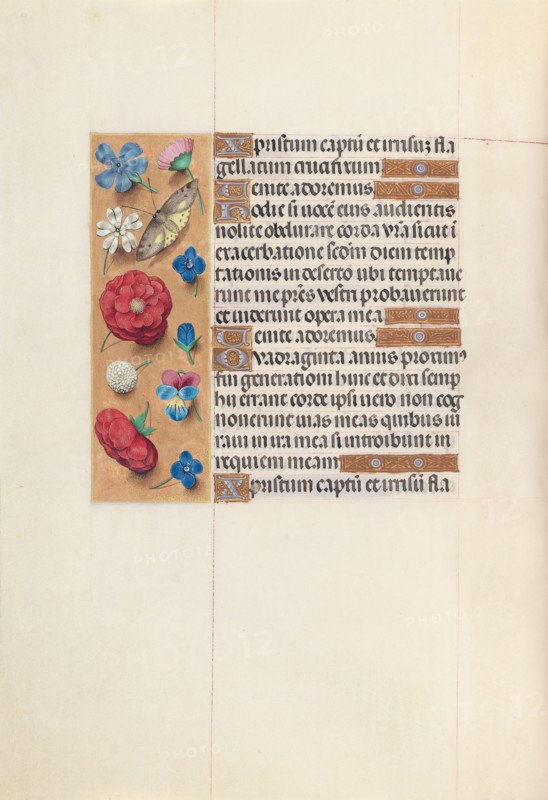 Xpristum captū et irrisuȝ fla
gellatum crucifixum
Uenite adoremus
Hodie si uocē eius audieritis
nolite obdurare corda vrā sicut ī
exacerbatione scdm diem temp
tationis in deserto ubi temptaue
runt me prēs vestri probauerunt
et uiderunt opera mea
Uenite adoremus
Quadraginta annis proximꝰ
fui generationi huic et dixi semp
hii errant corde ipsi uero non cog
nouerunt uias meas quibus iu
raui in ira mea si introibunt in
requiem meam
Xpristum captū et irrisū fla
PHOTO12